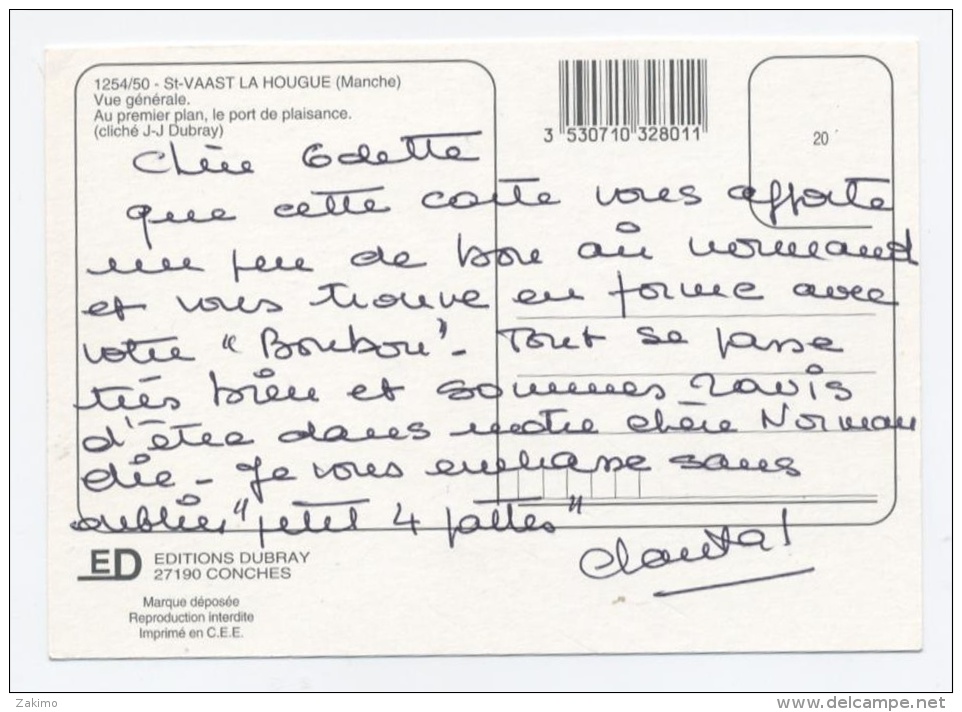 1254/50 - St-VAAST LA HOUGUE (Manche)
Vue générale.
Au premier plan, le port de plaisance.
(cliché J-J Dubray)
3 530710 328011
20
Chère Odette
que cette carte vous apporte
un peu de bon air normand
et vous trouve en forme avec
votre "Bonbon" - Tout se passe
très bien et sommes ravis
d'être dans notre chère Norman
die - Je vous embrasse sans
oublier "petit 4 pattes"
Chantal
ED EDITIONS DUBRAY
27190 CONCHES
Marque déposée
Reproduction interdite
Imprimé en C.E.E.
Zakimo
www.delcampe.net